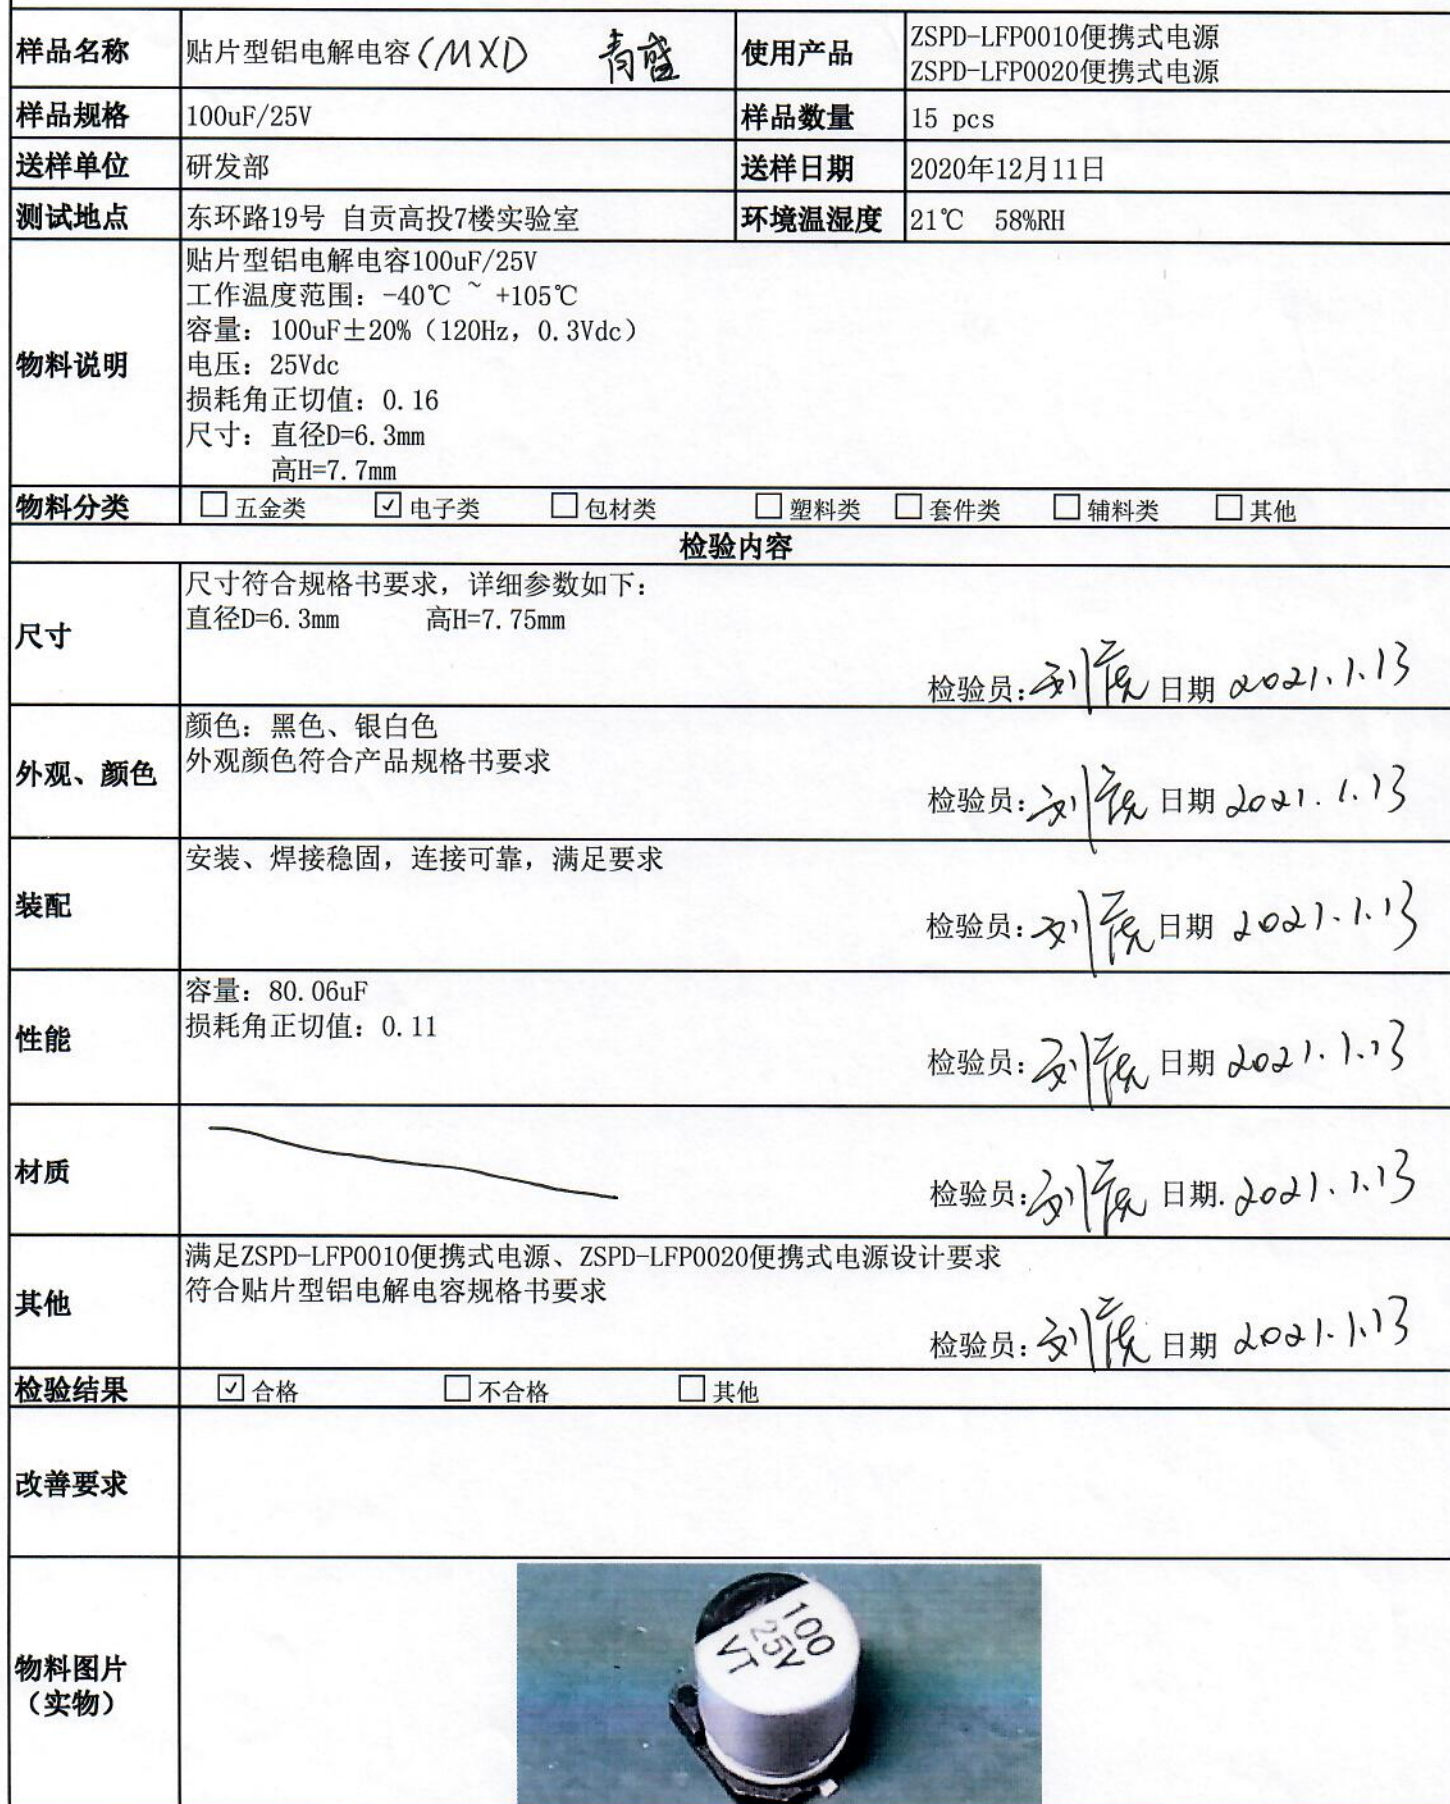 样品名称 贴片型铝电解电容(MXD 青盛 使用产品 ZSPD-LFP0010便携式电源
ZSPD-LFP0020便携式电源
样品规格 100uF/25V 样品数量 15 pcs
送样单位 研发部 送样日期 2020年12月11日
测试地点 东环路19号 自贡高投7楼实验室 环境温湿度 21℃ 58%RH
物料说明
贴片型铝电解电容100uF/25V
工作温度范围：-40℃ ~ +105℃
容量：100uF±20%（120Hz，0.3Vdc）
电压：25Vdc
损耗角正切值：0.16
尺寸：直径D=6.3mm
高H=7.7mm
物料分类 □五金类 ☑电子类 □包材类 □塑料类 □套件类 □辅料类 □其他
检验内容
尺寸
尺寸符合规格书要求，详细参数如下：
直径D=6.3mm 高H=7.75mm
检验员：刘 日期 2021.1.13
外观、颜色
颜色：黑色、银白色
外观颜色符合产品规格书要求
检验员：刘 日期 2021.1.13
装配
安装、焊接稳固，连接可靠，满足要求
检验员：刘 日期 2021.1.13
性能
容量：80.06uF
损耗角正切值：0.11
检验员：刘 日期 2021.1.13
材质
检验员：刘 日期. 2021.1.13
其他
满足ZSPD-LFP0010便携式电源、ZSPD-LFP0020便携式电源设计要求
符合贴片型铝电解电容规格书要求
检验员：刘 日期 2021.1.13
检验结果 ☑合格 □不合格 □其他
改善要求
物料图片
（实物）
100
25V
VT